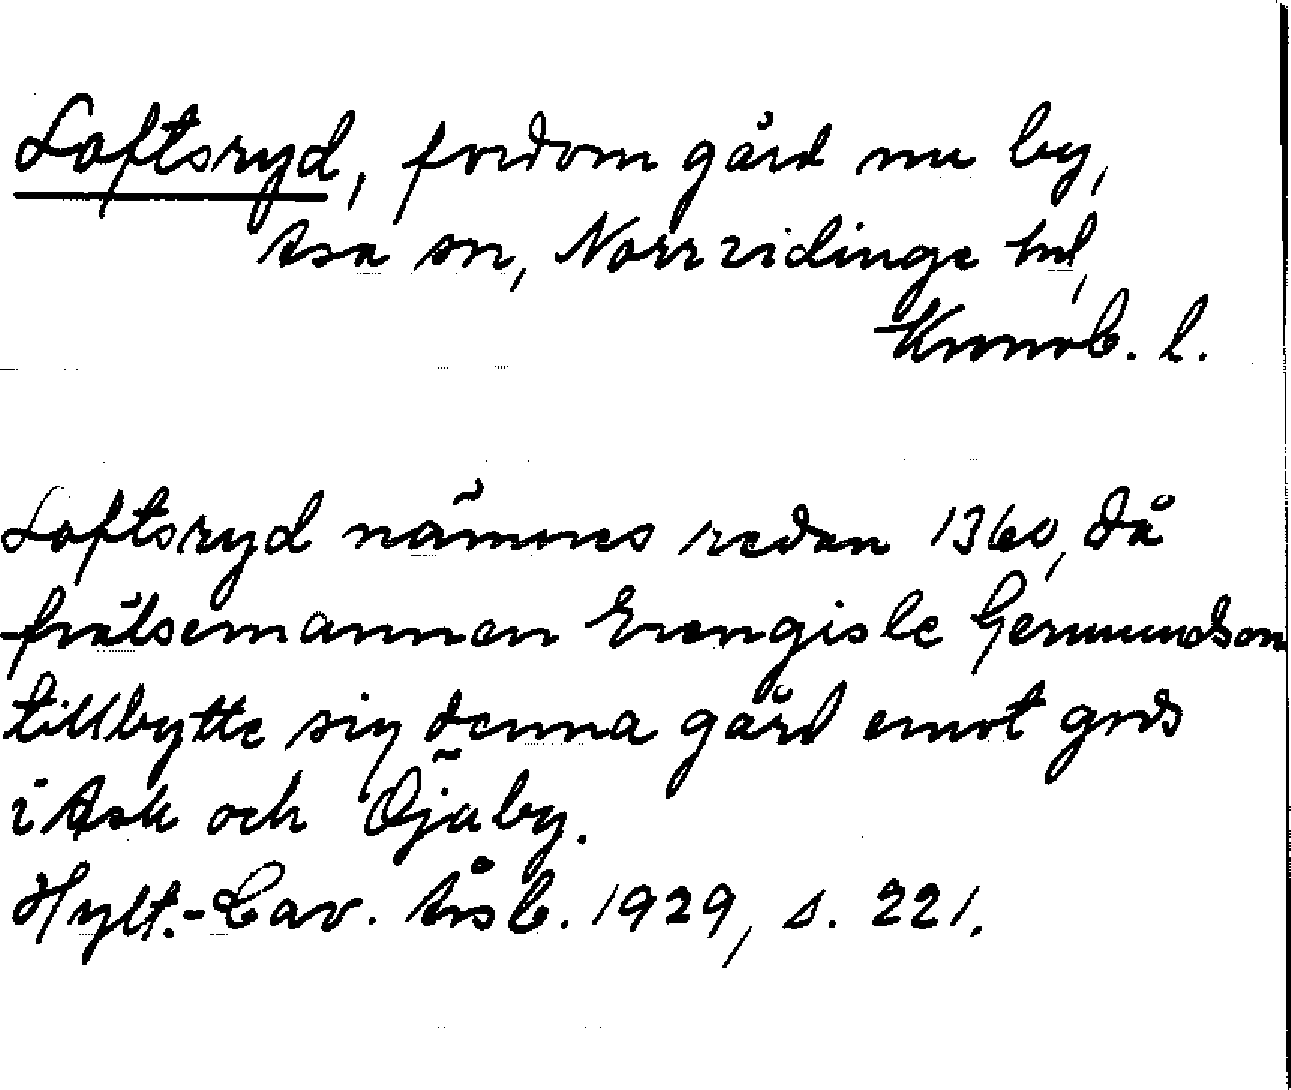 Loftsryd, fordom gård nu by,
Asa sn, Norrvidinge hd,
Kronob. l.
Loftsryd nämnes redan 1360, då
frälsemannen Erengisle Germundson
tillbytte sig denna gård emot gods
i Ask och Öjaby.
Hylt.-Cav. Årsb. 1929, s. 221.